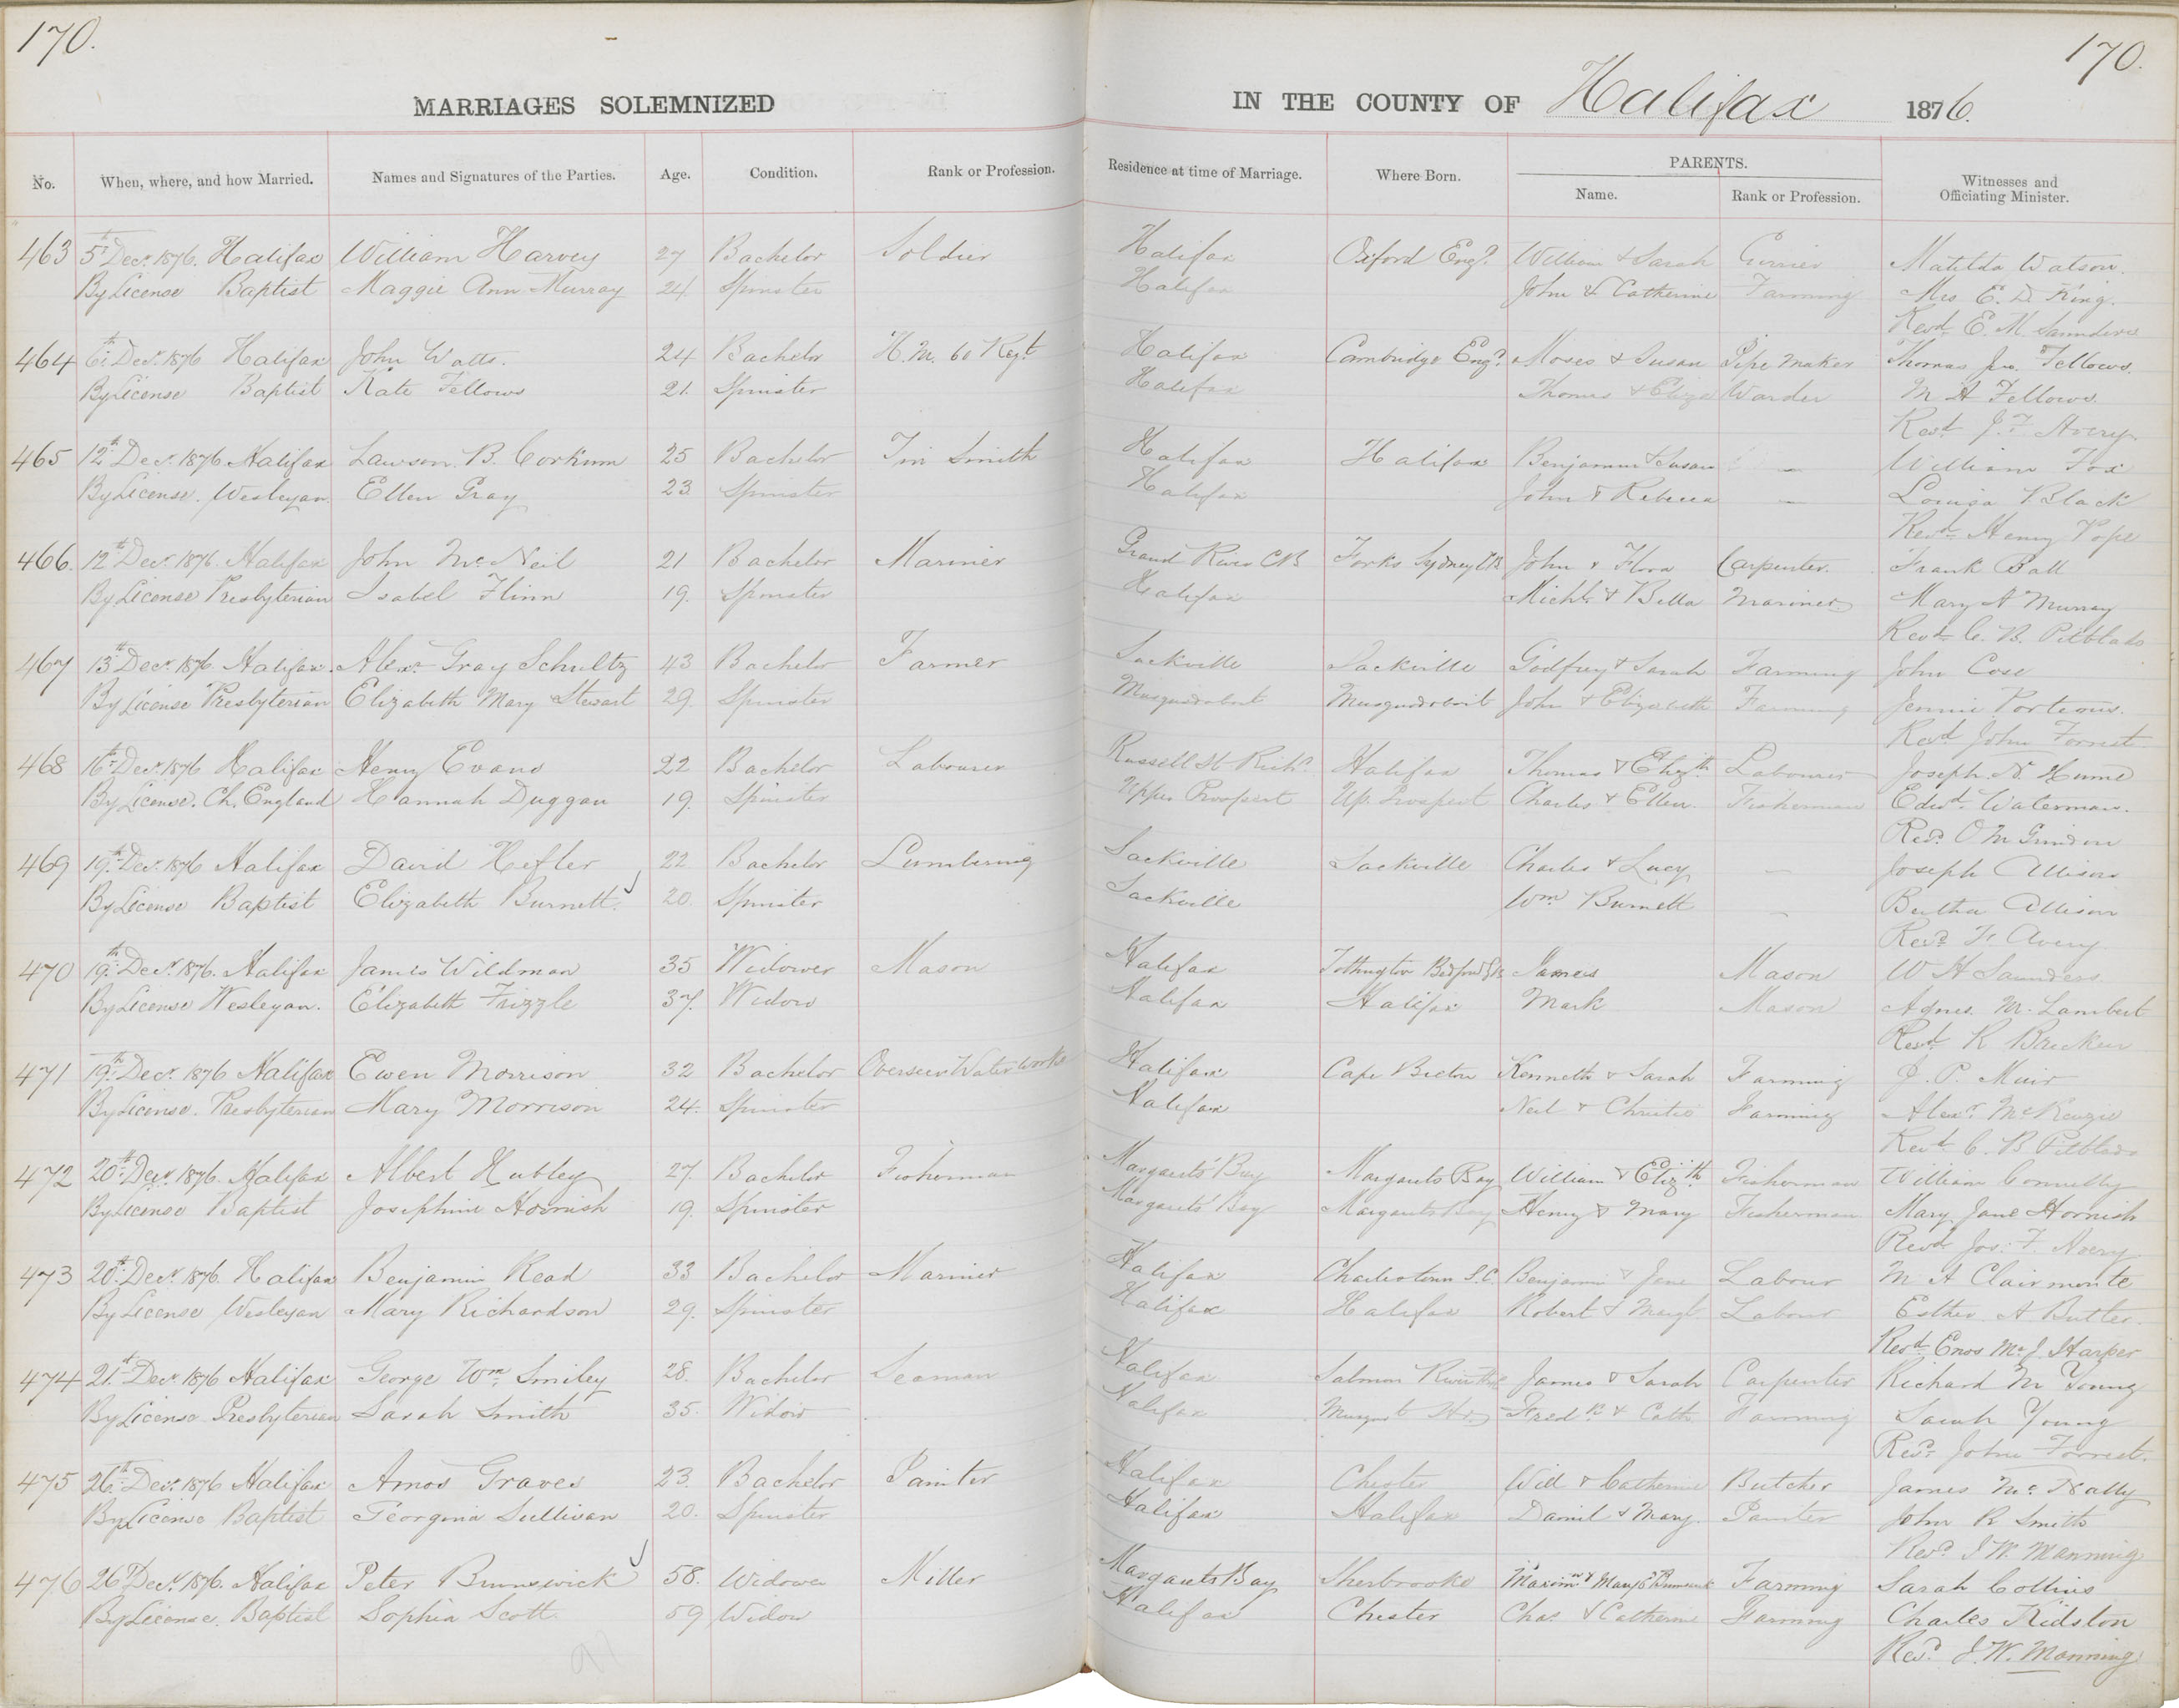 170.
170.
MARRIAGES SOLEMNIZED IN THE COUNTY OF Halifax 1876.
No. When, where, and how Married. Names and Signatures of the Parties. Age. Condition. Rank or Profession. Residence at time of Marriage. Where Born. PARENTS. Name. Rank or Profession. Witnesses and Officiating Minister.
463 5th Decr. 1876. Halifax William Harvey 27 Bachelor Soldier Halifax Oxford Engd. William & Sarah Currier Matilda Watson.
By License Baptist Maggie Ann Murray 24. Spinster Halifax John & Catherine Farming Mrs E. D. King.
Revd. E. M Saunders
464 6th Decr. 1876 Halifax John Watts. 24 Bachelor H. M. 60 Regt Halifax Cambridge Engd. Moses & Susan Pipe maker Thomas Fellows.
By License Baptist Kate Fellows 21. Spinster Halifax Thomas & Eliza Warder M A Fellows.
Revd. J. F. Avery
465 12th Decr. 1876 Halifax Lawson. B. Corkum 25 Bachelor Tin Smith Halifax Halifax Benjamin & Susan — William Fox
By License. Wesleyan. Ellen Gray 23 Spinster Halifax John & Rebecca — Louisa Black
Revd. Henry Pope
466. 12th Decr. 1876. Halifax John McNeil 21 Bachelor Mariner Grand River CB Forks Sydney CB John & Flora Carpenter. Frank Ball
By License Presbyterian Isabel Flinn 19. Spinster Halifax Michl. & Bella mariner Mary A Murray
Revd. C. B. Pitblado
467 13th Decr. 1876. Halifax. Alexr. Gray Schultz 43 Bachelor Farmer Sackville Sackville Godfrey & Sarah Farming John Cose
By License Presbyterian Elizabeth Mary Stewart 29. Spinster Musquodoboit Musquodoboit John & Elizabeth Farming Jennie Porteous.
Revd John Forrest
468 16th Decr. 1876 Halifax Henry Evans 22 Bachelor Labourer Russell St Richd. Halifax Thomas & Elizth Labourer Joseph. N. Hume
By License. Ch. England Hannah Duggan 19. Spinster Upper Prospect Up. Prospect Charles & Ellen. Fisherman Edwd. Waterman.
Revd. O M Grindon
469 19th Decr. 1876 Halifax David Hefler 22 Bachelor Lumbering Sackville Sackville Charles & Lucy — Joseph Allison
By License Baptist Elizabeth Burnett. 20. Spinster Sackville Wm. Burnett — Bertha Allison
Revd. Avery
470 19th Decr. 1876. Halifax James Wildman 35 Widower Mason Halifax James Mason W H Saunders
By License Wesleyan. Elizabeth Frizzle 37. Widow Halifax Halifax Mark Mason Agnes. M. Lambert
Revd. R Brecken
471 19th Decr. 1876 Halifax Ewen Morrison 32 Bachelor Overseer Water works Halifax Cape Breton Kenneth & Sarah Farming J. P. Muir
By License. Presbyterian Mary Morrison 24. Spinster Halifax Neil & Christie Farming Alexr. McKenzie
Revd. C. B Pitblado
472 20th Decr. 1876. Halifax Albert Hubley 27. Bachelor Fisherman Margarets' Bay Margarets Bay William & Elizth. Fisherman William Connelly
By License Baptist Josephine Hornish 19. Spinster Margarets' Bay Margarets Bay Henry & Mary Fisherman Mary Jane Hornish
Revd. Jos. F. Avery
473 20th Decr. 1876. Halifax Benjamin Read 33 Bachelor Mariner Halifax Charlestown S.C. Benjamin & Jane Labour M A Clairmonte
By License Wesleyan Mary Richardson 29. Spinster Halifax Halifax Robert & Margt Labour Esther A Butler.
Revd. Enos Harper
474 21st Decr. 1876 Halifax George Wm. Smiley 28. Bachelor Seaman Halifax Salmon River James & Sarah Carpenter Richard M Young
By License Presbyterian Sarah Smith 35. Widow Halifax Fredk. & Cath. Farming Sarah Young
Revd. John Forrest.
475 26th Decr. 1876 Halifax Amos Graves 23. Bachelor Painter Halifax Chester Will & Catherine Butcher James McNally
By License Baptist Georgina Sullivan 20. Spinster Halifax Halifax Daniel & Mary. Painter John R Smith
Revd. J. W. Manning
476 26th Decr. 1876. Halifax Peter Brunswick 58. Widower Miller Margarets Bay Sherbrooke Farming Sarah Collins
By License. Baptist Sophia Scott 59 Widow Halifax Chester Chas & Catherine Farming Charles Kidston
Revd. J. W. Manning